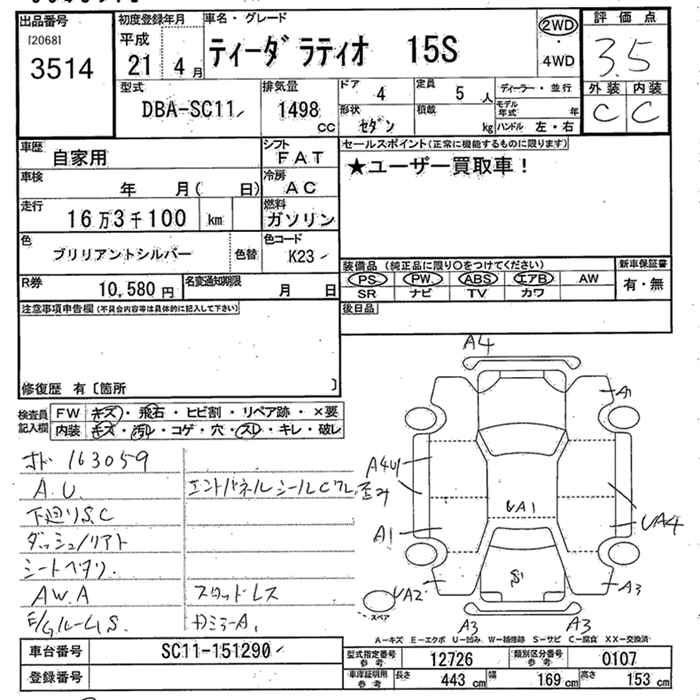 出品番号
[2068]
3514
初度登録年月
平成
21年 4月
車名・グレード
ティーダ ラティオ 15S
2WD
4WD
評価点
3.5
外装 内装
C C
型式
DBA-SC11
排気量
1498
CC
ドア 4
定員 5 人
形状 セダン
積載 kg
ディーラー・並行
モデル年式 年
ハンドル 左・右
車歴 自家用
シフト
FAT
車検 年 月( 日)
冷房
AC
走行 16万3千100 km
燃料
ガソリン
色
ブリリアントシルバー
色替
色コード
K23
R券 10,580円
名変通知期限 月 日
セールスポイント(正常に機能するものに限ります)
★ユーザー買取車!
装備品(純正品に限り○をつけてください)
新車保証書
PS PW ABS エアB AW
有・無
SR ナビ TV カワ
後日品
注意事項申告欄(不具合内容等は具体的に記入して下さい)
修復歴 有〔箇所 〕
検査員
記入欄
FW キズ・飛石・ヒビ割・リペア跡・×要
内装 キズ・汚れ・コゲ・穴・スレ・キレ・破レ
163059
A.U.
エンドパネルシールCワレ,歪み
下廻りS.C
ダッシュノリアト
シートヘタリ.
A W A
スタッドレス
E/GルームS.
A4
A1
A4U1
A1
UA1
UA4
S1
UA2
A3
A3
A3
スペア
A-キズ E-エクボ U-凹み W-補修跡 S-サビ C-腐食 XX-交換済
車台番号 SC11-151290
登録番号
型式指定番号
参考
12726
類別区分番号
参考
0107
車庫証明用
参考
長さ 443 cm 幅 169 cm 高さ 153 cm